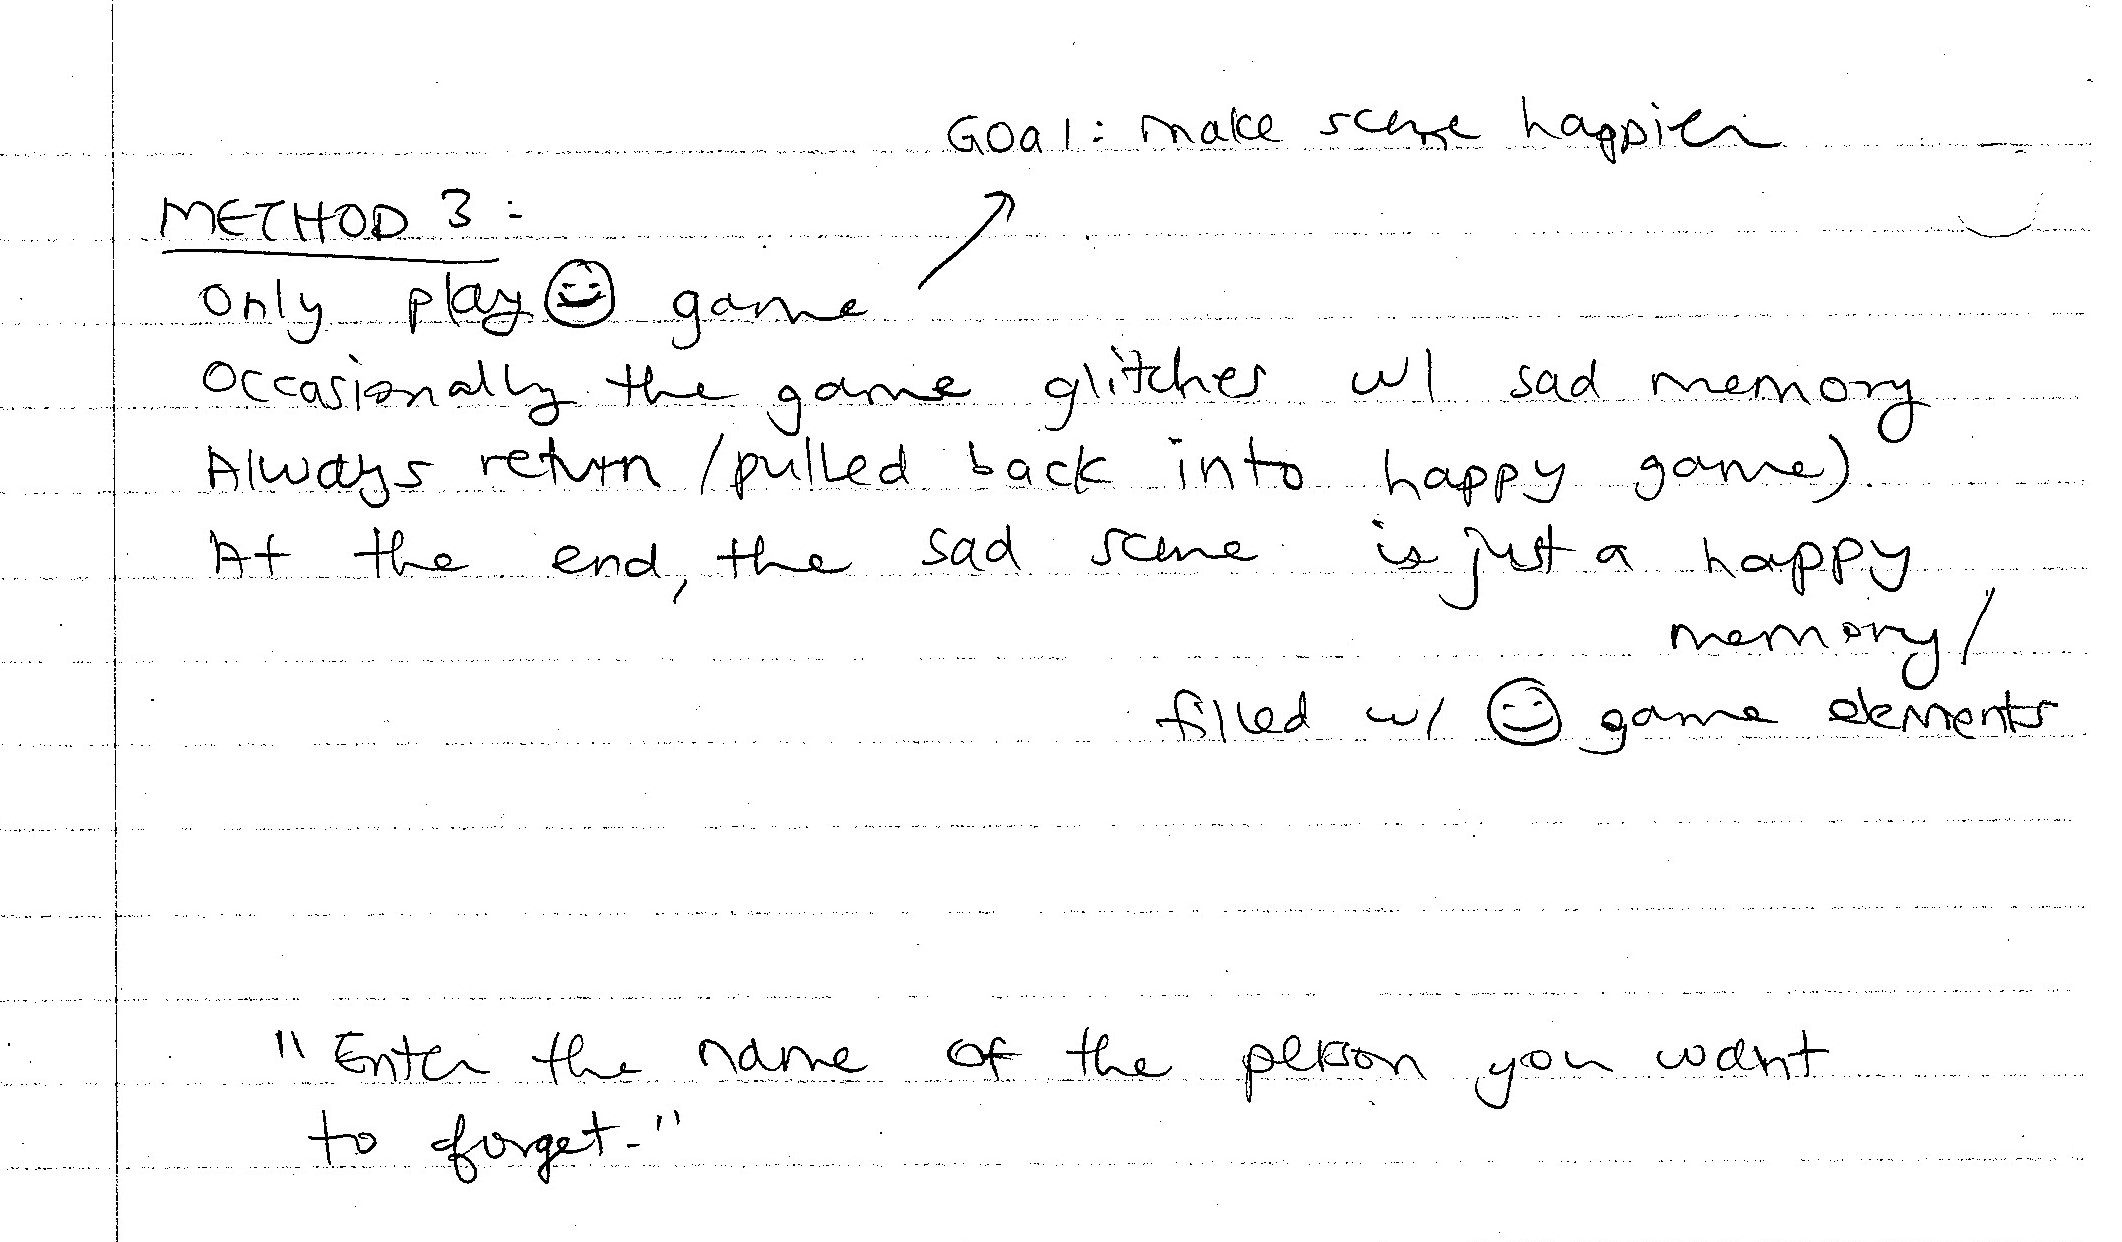 Goal: make scene happier
METHOD 3:
Only play ☺ game
Occasionally the game glitches w/ sad memory
Always return /pulled back into happy game).
At the end, the sad scene is just a happy
memory/
filled w/ ☺ game elements
"Enter the name of the person you want
to forget."